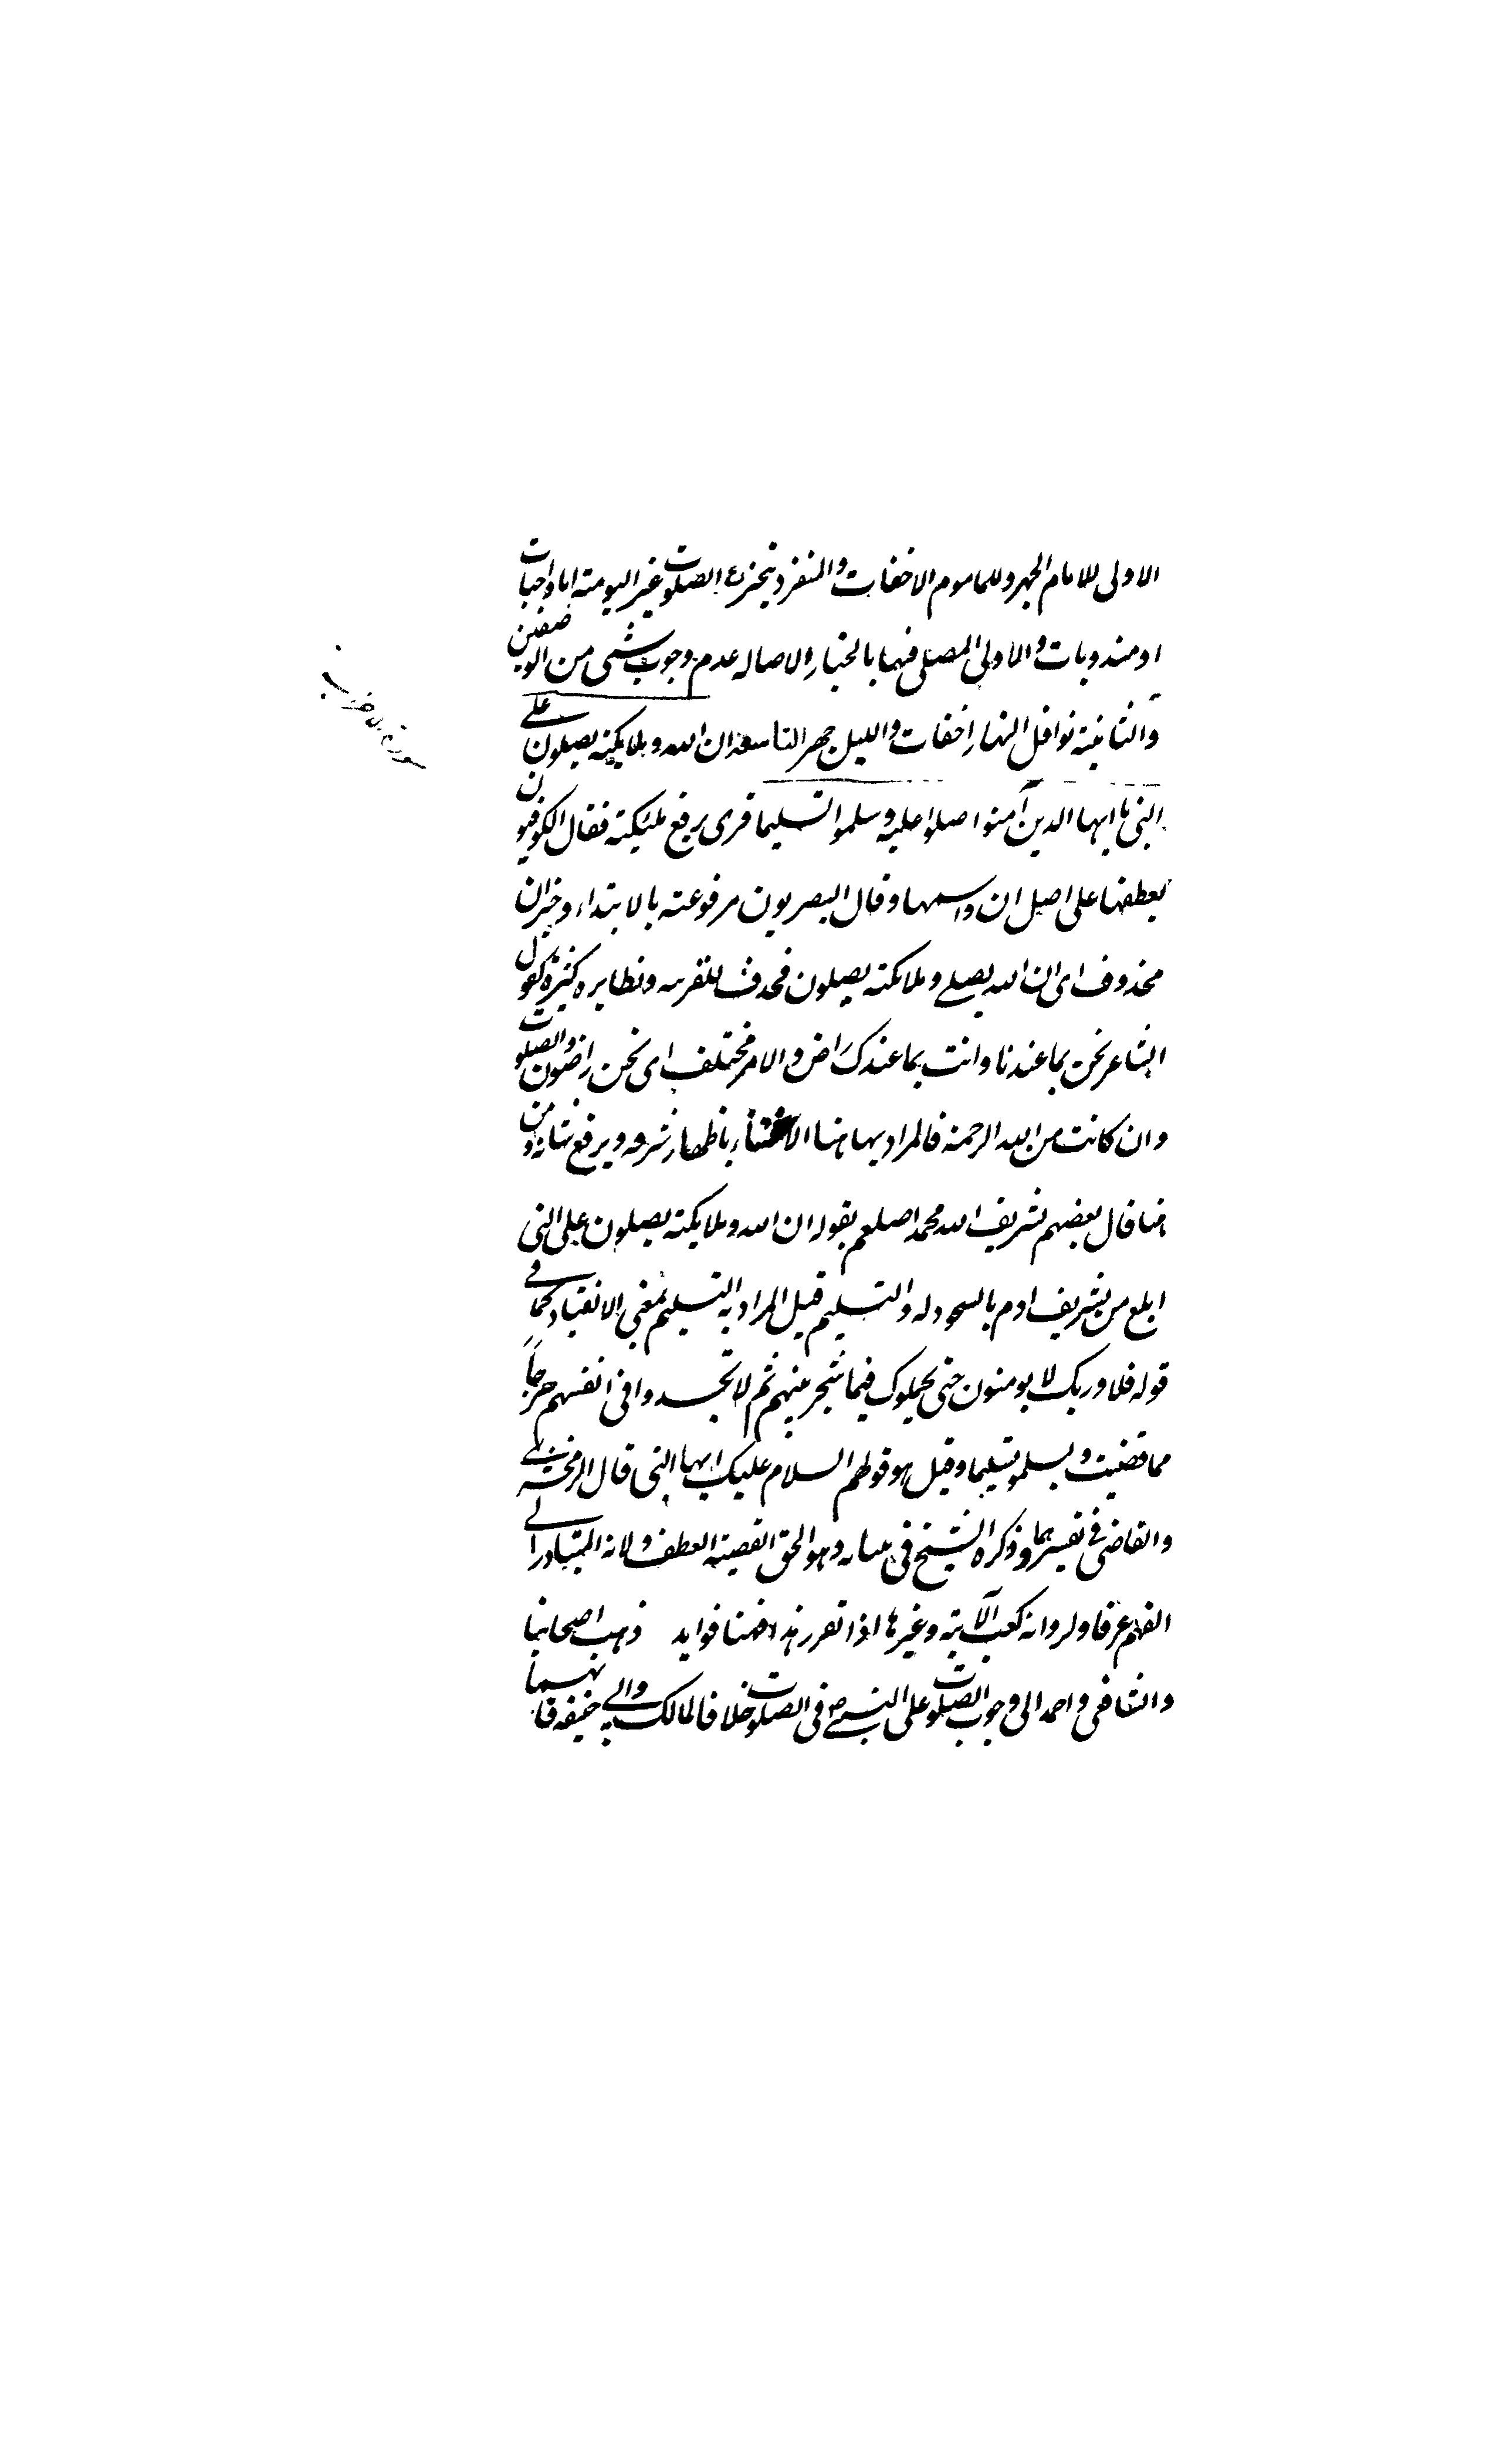 الاولى للامام الجهر وللماموم الاخفات والمنفرد يتخير ع الصلوت غير اليومية اما واجبات
او مندوبات والاولى المصلى فيها بالخيار لاصالة عدم وجوب شئ من الوصفين
والثانية نوافل النهار اخفات والليل جهر التاسعة ان الله وملايكته يصلون على
النبى يا ايها الذين آمنوا صلوا عليه وسلموا تسليما قرى برفع مليكته فقال الكوفيون
بعطفها على اصل ان واسمها وقال البصريون مرفوعة بالابتداء وخبر ان
محذوف اى ان الله يصلى وملايكته يصلون فحذف للقرينه ونظايره كثيرة كقول
الشاعر نحن بما عندنا وانت بما عندك راض والامر مختلف اى نحن راضون والصلوت
وان كانت من الله الرحمة فالمراد بها هنا الاعتناء باظهار شرفه ويرفع شانه ومن
هنا قال بعضهم تشريف الله محمدا صلعم بقوله ان الله وملايكته يصلون على النبى
ابلغ من تشريف ادم بالسجود له والتسليم قيل المراد به التسليم بمعنى الانقياد كما فى
قوله فلا وربك لا يومنون حتى يحكموك فيما شجر بينهم ثم لا تجدوا فى انفسهم حرجاً
مما قضيت ويسلموا تسليما وقيل هو قولهم السلام عليك ايها النبى قال الزمخشرى
والقاضى فى تفسيرهما وذكره الشيخ فى تبيانه وهو الحق لقضية العطف ولانه المتبادر الى
الفهم عرفا ولرواية كعب الآتية وغيرها اذا تقرر هذا فهنا فوايد ذهب اصحابنا
والشافعى واحمد الى وجوب الصلوت على النبى ص فى الصلوت خلافا لمالك وابى حنيفه فانهما